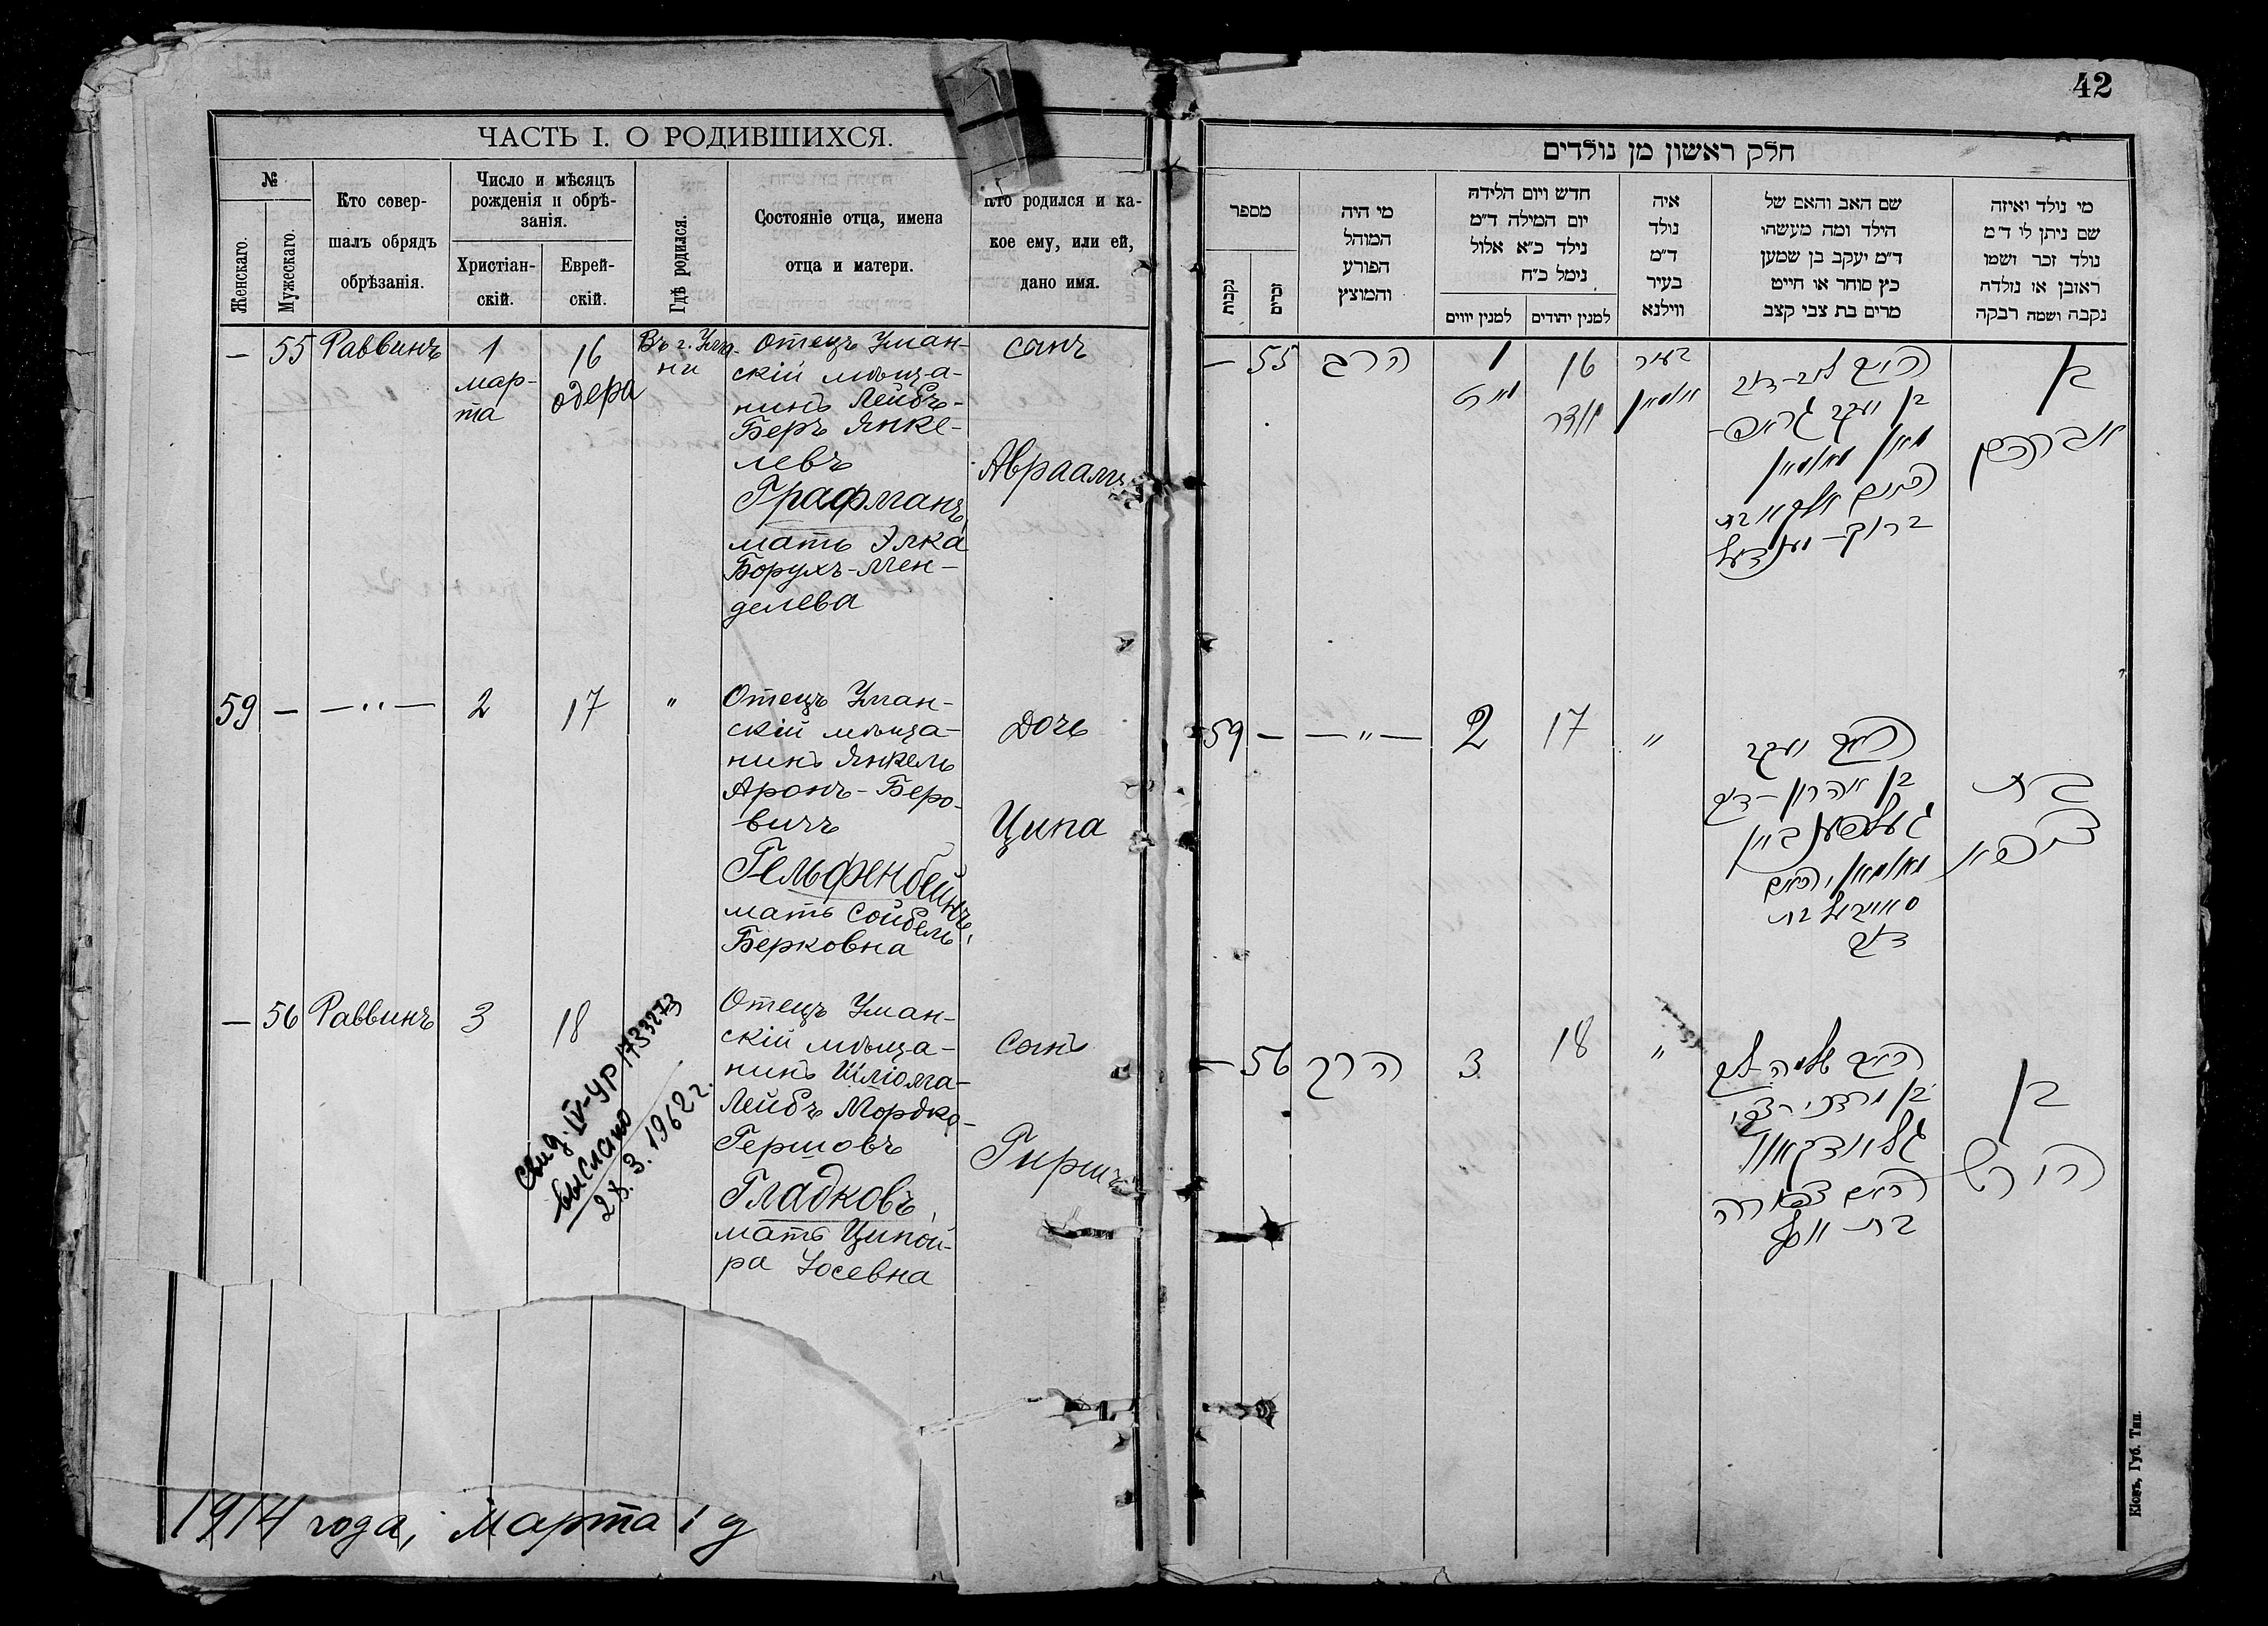 42
ЧАСТЬ I. О РОДИВШИХСЯ.
№
Женскаго.
Мужескаго.
Кто совер-
шалъ обрядъ
обрѣзанія.
Число и мѣсяцъ
рожденія и обрѣ-
занія.
Христіан-
скій.
Еврей-
скій.
Гдѣ родился.
Состояніе отца, имена
отца и матери.
Кто родился и ка-
кое ему, или ей,
дано имя.
— 55 Раввинъ
1
мар-
та
16
одера
Въ г. Ума-
ни
Отецъ Уман-
скій мѣща-
нинъ Лейбъ-
Беръ Янке-
левъ
Графманъ,
мать Элка
Борухъ-Мен-
делева
сынъ
Авраамъ
59 — —〃— 2 17 〃
Отецъ Уман-
скій мѣща-
нинъ Янкель
Аронъ-Беро-
вичъ
Гельфенбейнъ,
мать Сойбель
Берковна
Дочь
Ципа
— 56 Раввинъ 3 18
Отецъ Уман-
скій мѣща-
нинъ Шліома-
Лейбъ Мордко-
Гершовъ
Гладковъ,
мать Ципой-
ра Іосевна
Сынъ
Гиршъ
свид. IV-УР 1733273
выслано
28.3.1962 г.
1914 года, Марта 1 д
חלק ראשון מן נולדים
מספר
נקבות
זכרים
מי היה
המוהל
הפורע
והמוצץ
חדש ויום הלידה
יום המילה ד״מ
נילד כ״א אלול
נימל כ״ח
למנין יווים
למנין יהודים
איה
נולד
ד״מ
בעיר
ווילנא
שם האב והאם של
הילד ומה מעשהו
ד״מ יעקב בן שמען
כץ סוחר או חייט
מרים בת צבי קצב
מי נולד ואיזה
שם ניתן לו ד״מ
נולד זכר ושמו
ראובן או נולדה
נקבה ושמה רבקה
— 55 הרב
1
מארט
16
אדר
בעיר
אומאן
בן יעקב גראפ-
מאן מאומאן
ברוך-מענדעל
בן
אברהם
59 — —〃— 2 17 〃
האב יעקב
בן אהרון-דוב
געלפענביין
בת
ציפא
— 56 הרב 3 18 〃
האב שלמה-ליב
האם צפורה
בת יוסף
בן
הירש
Кіевъ, Губ. Тип.